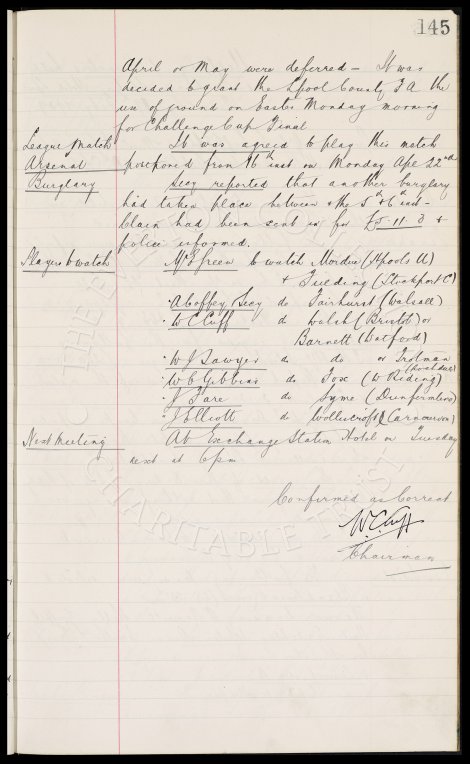 145
April or May were deferred — It was
decided to grant the L'pool County F A the
use of ground on Easter Monday morning
for Challenge Cup Final
League Match It was agreed to play this match
Arsenal postponed from 16th inst on Monday Apl 22nd
Burglary Secy reported that another burglary
had taken place between the 5th & 6th inst
Claim had been sent in for £5-11-8 &
police informed.
Players to watch Mr Green to watch Mordue (Hpools U)
& Fielding (Stockport C)
A Coffey Secy do Fairhurst (Walsall)
W C Cuff do Walsh (Bristol) or
Barnett (Watford)
W J Sawyer do do or Trotman
W C Gibbins do Fox (W Riding)
J Fare do Syme (Dunfermline)
J Elliott do Woollercroft (Carnarvon)
Next Meeting At Exchange Station Hotel on Tuesday
next at 6 pm
Confirmed as Correct
W.C. Cuff
Chairman
THE EVERTON
CHARITABLE TRUST